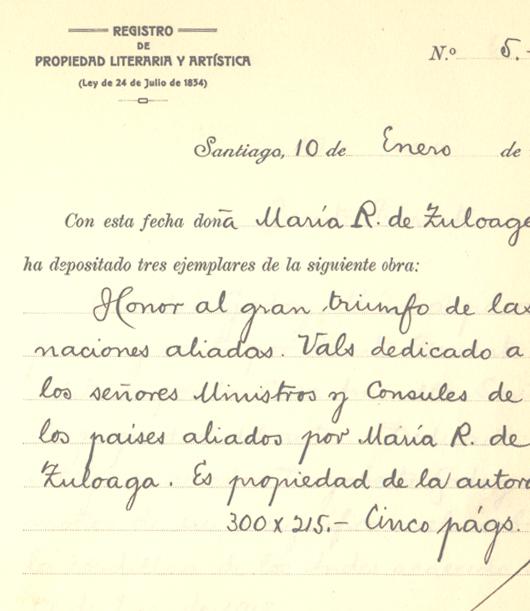 REGISTRO
DE
PROPIEDAD LITERARIA Y ARTÍSTICA
(Ley de 24 de Julio de 1834)
N.º 5.-
Santiago, 10 de Enero de
Con esta fecha doña María R. de Zuloaga
ha depositado tres ejemplares de la siguiente obra:
Honor al gran triunfo de las
naciones aliadas. Vals dedicado a
los señores Ministros y Consules de
los países aliados por María R. de
Zuloaga. Es propiedad de la autora
300 x 215.- Cinco págs.